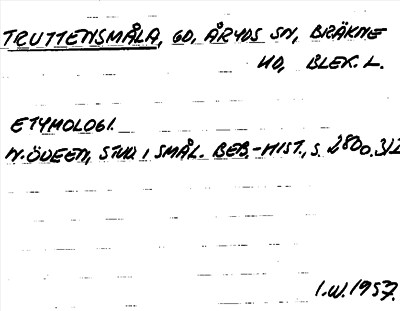 TRUTTENSMÅLA, GD, ÅRYDS SN, BRÄKNE
HD, BLEK. L.
ETYMOLOGI.
N. ÖDEEN, STUD. I SMÅL. BEB.-HIST., S. 280 o. 312
I.W. 1957.